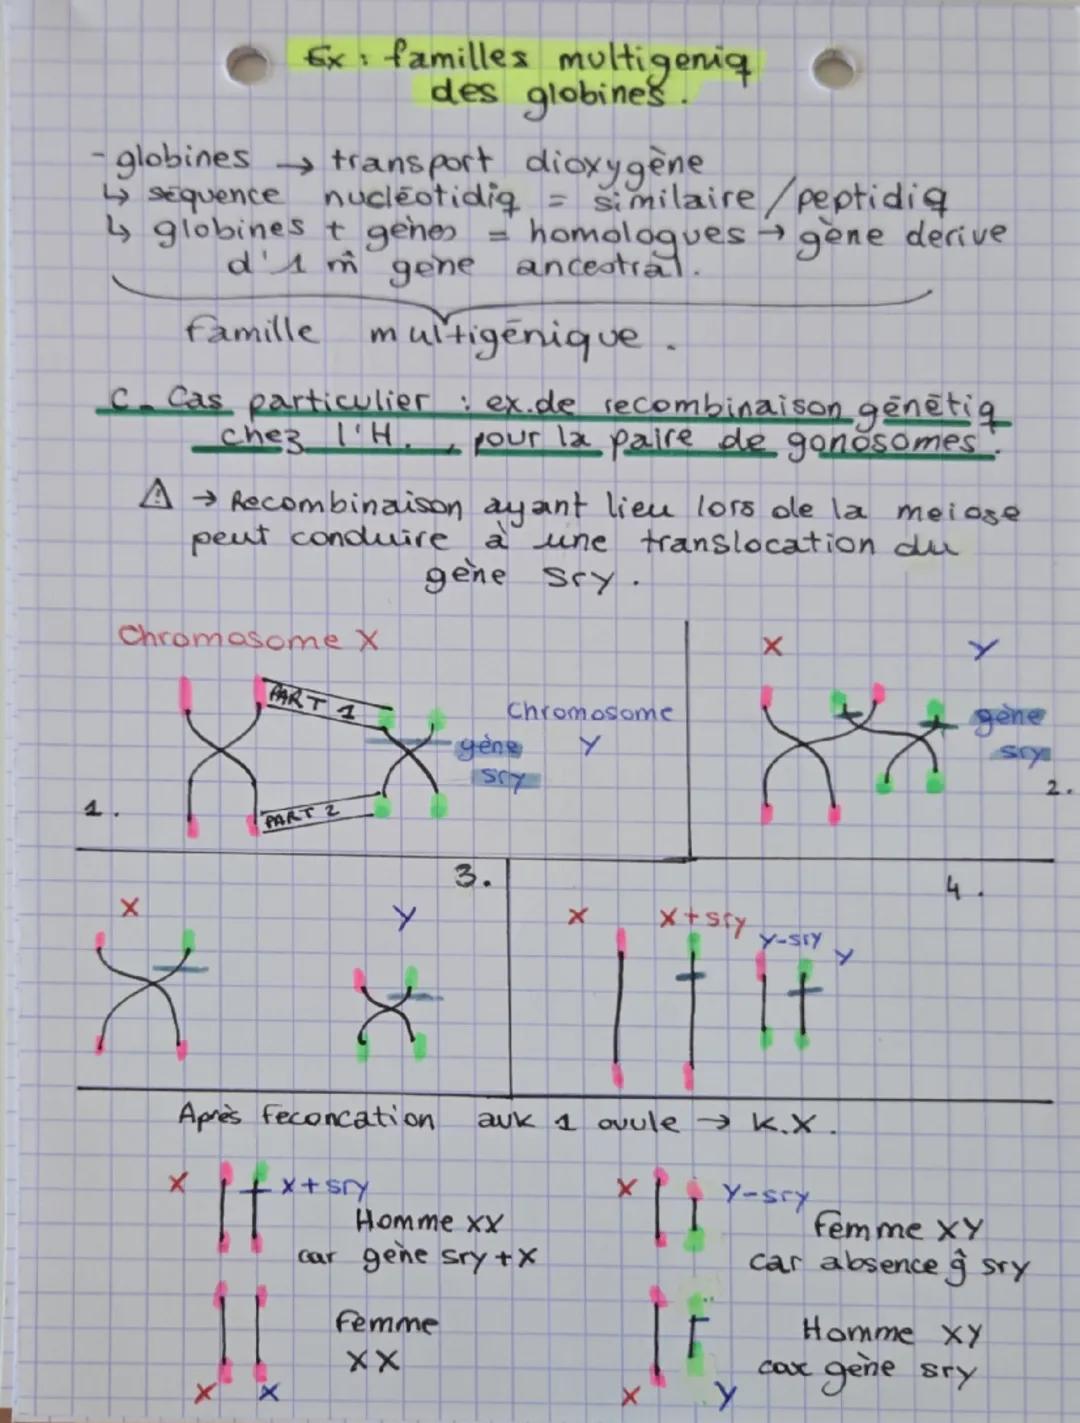 Ex : familles multigéniq
des globines.
- globines → transport dioxygène
↳ séquence nucléotidiq = similaire / peptidiq
↳ globines + gènes = homologues → gène dérive
d'1 m̂ gène ancestral.
famille multigénique.
C. Cas particulier : ex.de recombinaison génétiq
chez l'H., pour la paire de gonosomes.
⚠ → Recombinaison ayant lieu lors de la meiose
peut conduire à une translocation du
gène sry.
Chromosome X
PART 1
Chromosome
Y
gène
sry
PART 2
1.
X
Y
gène
sry
2.
3.
X
Y
4.
X
X+sry
Y-sry
Y
Après feconcation auk 1 ovule → K.X.
X
X+sry
Homme XX
car gène sry+X
X
Y-sry
femme XY
car absence ĝ sry
femme
XX
X
X
Homme XY
car gène sry
X
Y